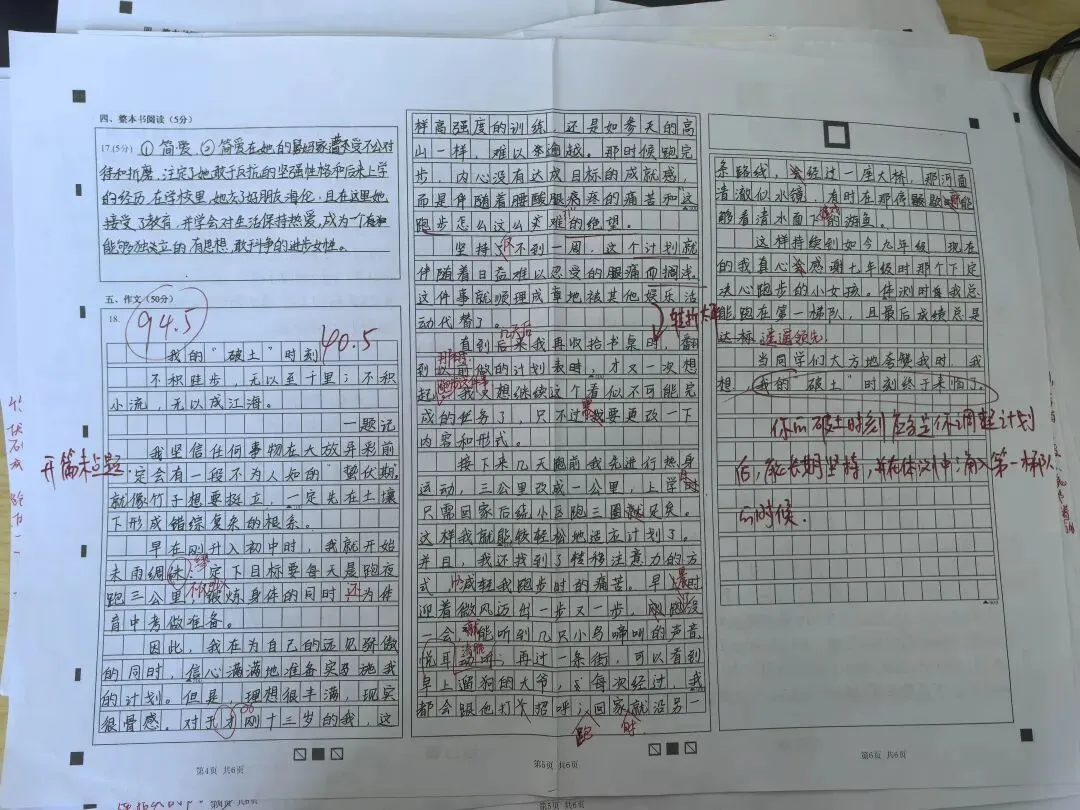 四、整本书阅读（5分）
17.(5分) ① 简爱 ② 简爱在她的舅妈家遭受不公对
待和折磨，注定了她敢于反抗的坚强性格和后来上学
的经历，在学校里，她有了好朋友海伦，且在这里她
接受了教育，并学会对生活保持热爱，成为一个
能够独立的有思想，敢于斗争的进步女性。
五、作文（50分）
18.
94.5
40.5
我的“破土”时刻
不积跬步，无以至千里；不积
小流，无以成江海。
—题记
我坚信任何事物在大放异彩前
开篇未点题
一定会有一段不为人知的“蛰伏期”
就像竹子想要挺立，一定先在土壤
下形成错综复杂的根系。
早在刚升入初中时，我就开始
未雨绸缪
定下目标要每天晨跑夜
跑三公里，锻炼身体的同时还为体
育中考做准备。
因此，我在为自己的远见骄傲
的同时，信心满满地准备实施我
的计划。但是，理想很丰满，现实
很骨感。对于才刚十三岁的我，这
第4页 共6页
样高强度的训练，还是如参天的高
山一样，难以逾越。那时候跑完
步，内心没有达成目标的成就感，
而是伴随着腰酸腿疼的痛苦和这
跑步怎么这么艰难的绝望。
坚持了仅不到一周，这个计划就
伴随着日益难以忍受的腿痛而搁浅。
这件事就顺理成章地被其他娱乐活
动代替了。
转折太
直到后来我再收拾书桌时，翻
到以前做的计划表时，才又一次想
起，我又想继续这个看似不可能完
成的任务了，只不过我要更改一下
内容和形式。
接下来几天跑前我先进行热身
运动，三公里改成一公里，上学时
只需回家后绕小区跑三圈就足矣。
这样我就能够轻松地适应计划了。
并且，我还找到了转移注意力的方
式减轻我跑步时的痛苦。早晨时
迎着微风迈出一步又一步，刚跑没
一会就能听到几只小鸟啼叫的声音，
悦耳动听，再过一条街，可以看到
早上遛狗的大爷，每次经过，我
都会跟他打个招呼；回家就沿另一
跑 时
第5页 共6页
条路线，会经过一座大桥，那河面
清澈似水镜，有时在那停歇时能
够看清水面下的游鱼。
这样持续到如今九年级，现在
的我真心感谢七年级时那个下定
决心跑步的小女孩。体测时每我总
能跑在第一梯队，且最后成绩总是
达标遥遥领先。
当同学们大方地夸赞我时，我
想，我的“破土”时刻终于来临了。
你的破土时刻应该是你调整计划
后，能长期坚持，并在体测中涌入第一梯队
的时候.
第6页 共6页